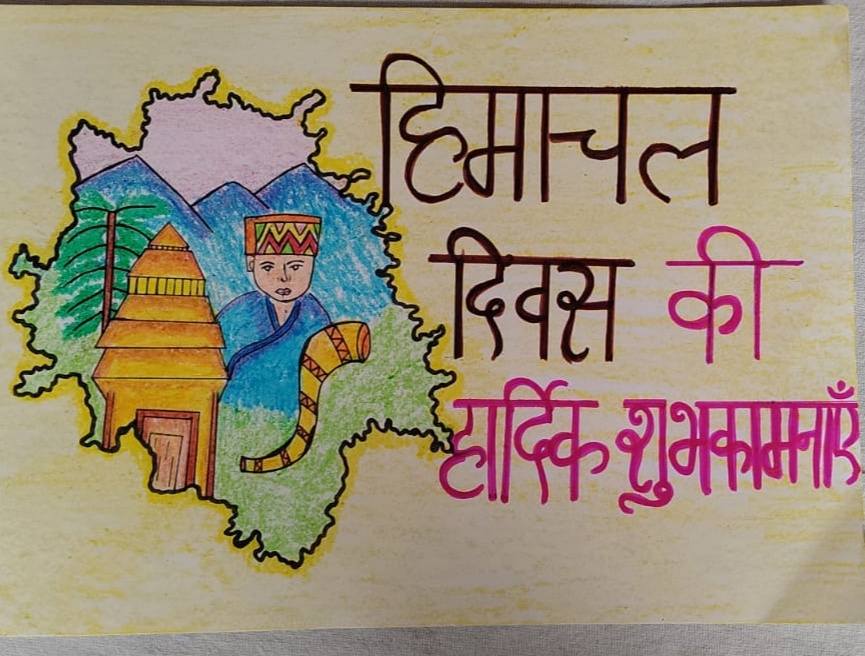 हिमाचल
दिवस की
हार्दिक शुभकामनाएँ